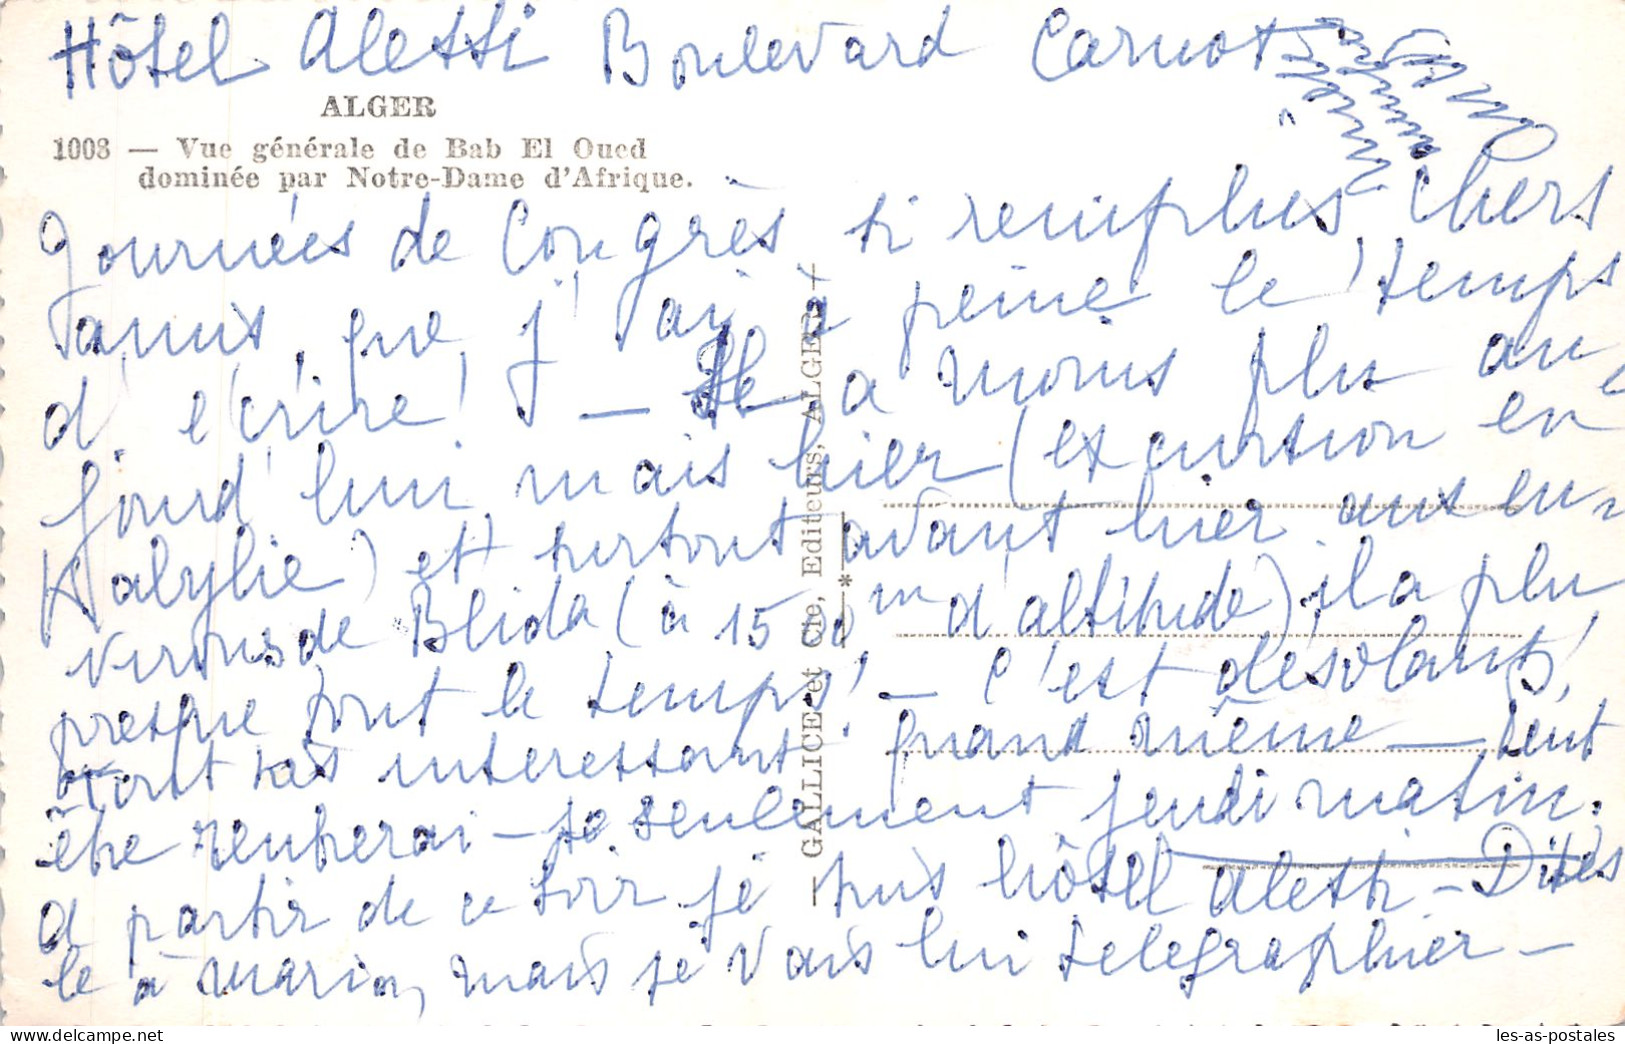 Hôtel Aletti Boulevard Carnot
ALGER
1008 — Vue générale de Bab El Oued
dominée par Notre-Dame d'Afrique.
Journées de Congrès si remplies, Chers
amis, que j'ai à peine le temps
d'écrire! — Il a moins plu au
jourd'hui, mais hier (excursion en
Kabylie) et surtout avant hier aux en-
virons de Blida (à 1500m d'altitude), il a plu
presque tout le temps! — C'est désolant!
très intéressant quand même —
être rentrerai-je seulement jeudi matin.
A partir de ce soir je suis hôtel Aletti — Dites
le à Maria, mais je vais lui télégraphier —
— GALLICE et Cie, Editeurs, ALGER —
*
les-as-postales